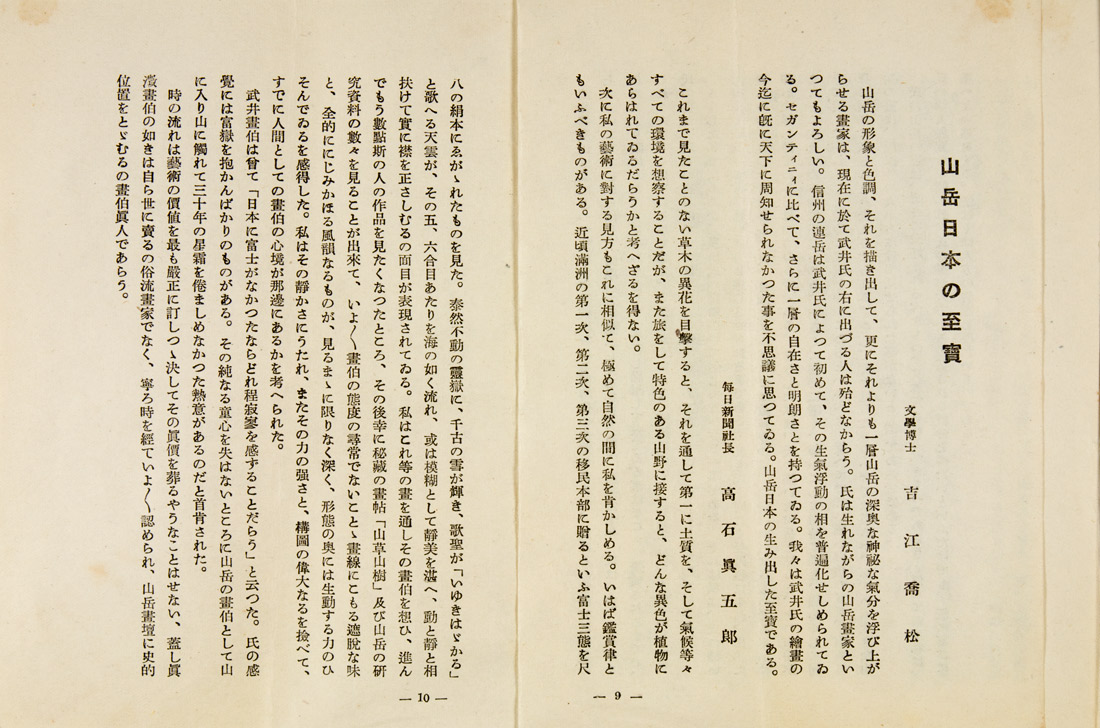 山岳日本の至寶
文學博士 吉江喬松
山岳の形象と色調、それを描き出して、更にそれよりも一層山岳の深奥な神祕な氣分を浮び上が
らせる畫家は、現在に於て武井氏の右に出づる人は殆どなからう。氏は生れながらの山岳畫家とい
つてもよろしい。信州の連岳は武井氏によつて初めて、その生氣浮動の相を普遍化せしめられてゐ
る。セガンティニィに比べて、さらに一層の自在さと明朗さとを持つてゐる。我々は武井氏の繪畫の
今迄に旣に天下に周知せられなかつた事を不思議に思つてゐる。山岳日本の生み出した至寶である。
每日新聞社長 高石眞五郎
これまで見たことのない草木の異花を目擊すると、それを通して第一に土質を、そして氣候等々
すべての環境を想察することだが、また旅をして特色のある山野に接すると、どんな異色が植物に
あらはれてゐるだらうかと考へざるを得ない。
次に私の藝術に對する見方もこれに相似て、極めて自然の間に私を肯かしめる。いはば鑑賞律と
もいふべきものがある。近頃滿洲の第一次、第二次、第三次の移民本部に贈るといふ富士三態を尺
— 9 —
八の絹本にゑがゝれたものを見た。泰然不動の靈嶽に、千古の雪が輝き、歌聖が「いゆきはゞかる」
と歌へる天雲が、その五、六合目あたりを海の如く流れ、或は模糊として靜美を湛へ、動と靜と相
扶けて實に襟を正さしむるの面目が表現されてゐる。私はこれ等の畫を通しその畫伯を想ひ、進ん
でもう數點斯の人の作品を見たくなつたところ、その後幸に秘藏の畫帖「山草山樹」及び山岳の硏
究資料の數々を見ることが出來て、いよ〱畫伯の態度の尋常でないことゝ畫線にこもる遮脫な味
と、全的ににじみかほる風韻なるものが、見るまゝに限りなく深く、形態の奥には生動する力のひ
そんでゐるを感得した。私はその靜かさにうたれ、またその力の强さと、構圖の偉大なるを撿べて、
すでに人間としての畫伯の心境が那邊にあるかを考へられた。
武井畫伯は曾て「日本に富士がなかつたならどれ程寂寥を感ずることだらう」と云つた。氏の感
覺には富嶽を抱かんばかりのものがある。その純なる童心を失はないところに山岳の畫伯として山
に入り山に觸れて三十年の星霜を倦ましめなかつた熱意があるのだと首肯された。
時の流れは藝術の價値を最も嚴正に訂しつゝ決してその眞價を葬るやうなことはせない、蓋し眞
澂畫伯の如きは自ら世に賣るの俗流畫家でなく、寧ろ時を經ていよ〱認められ、山岳畫壇に史的
位置をとゞむるの畫伯眞人であらう。
— 10 —